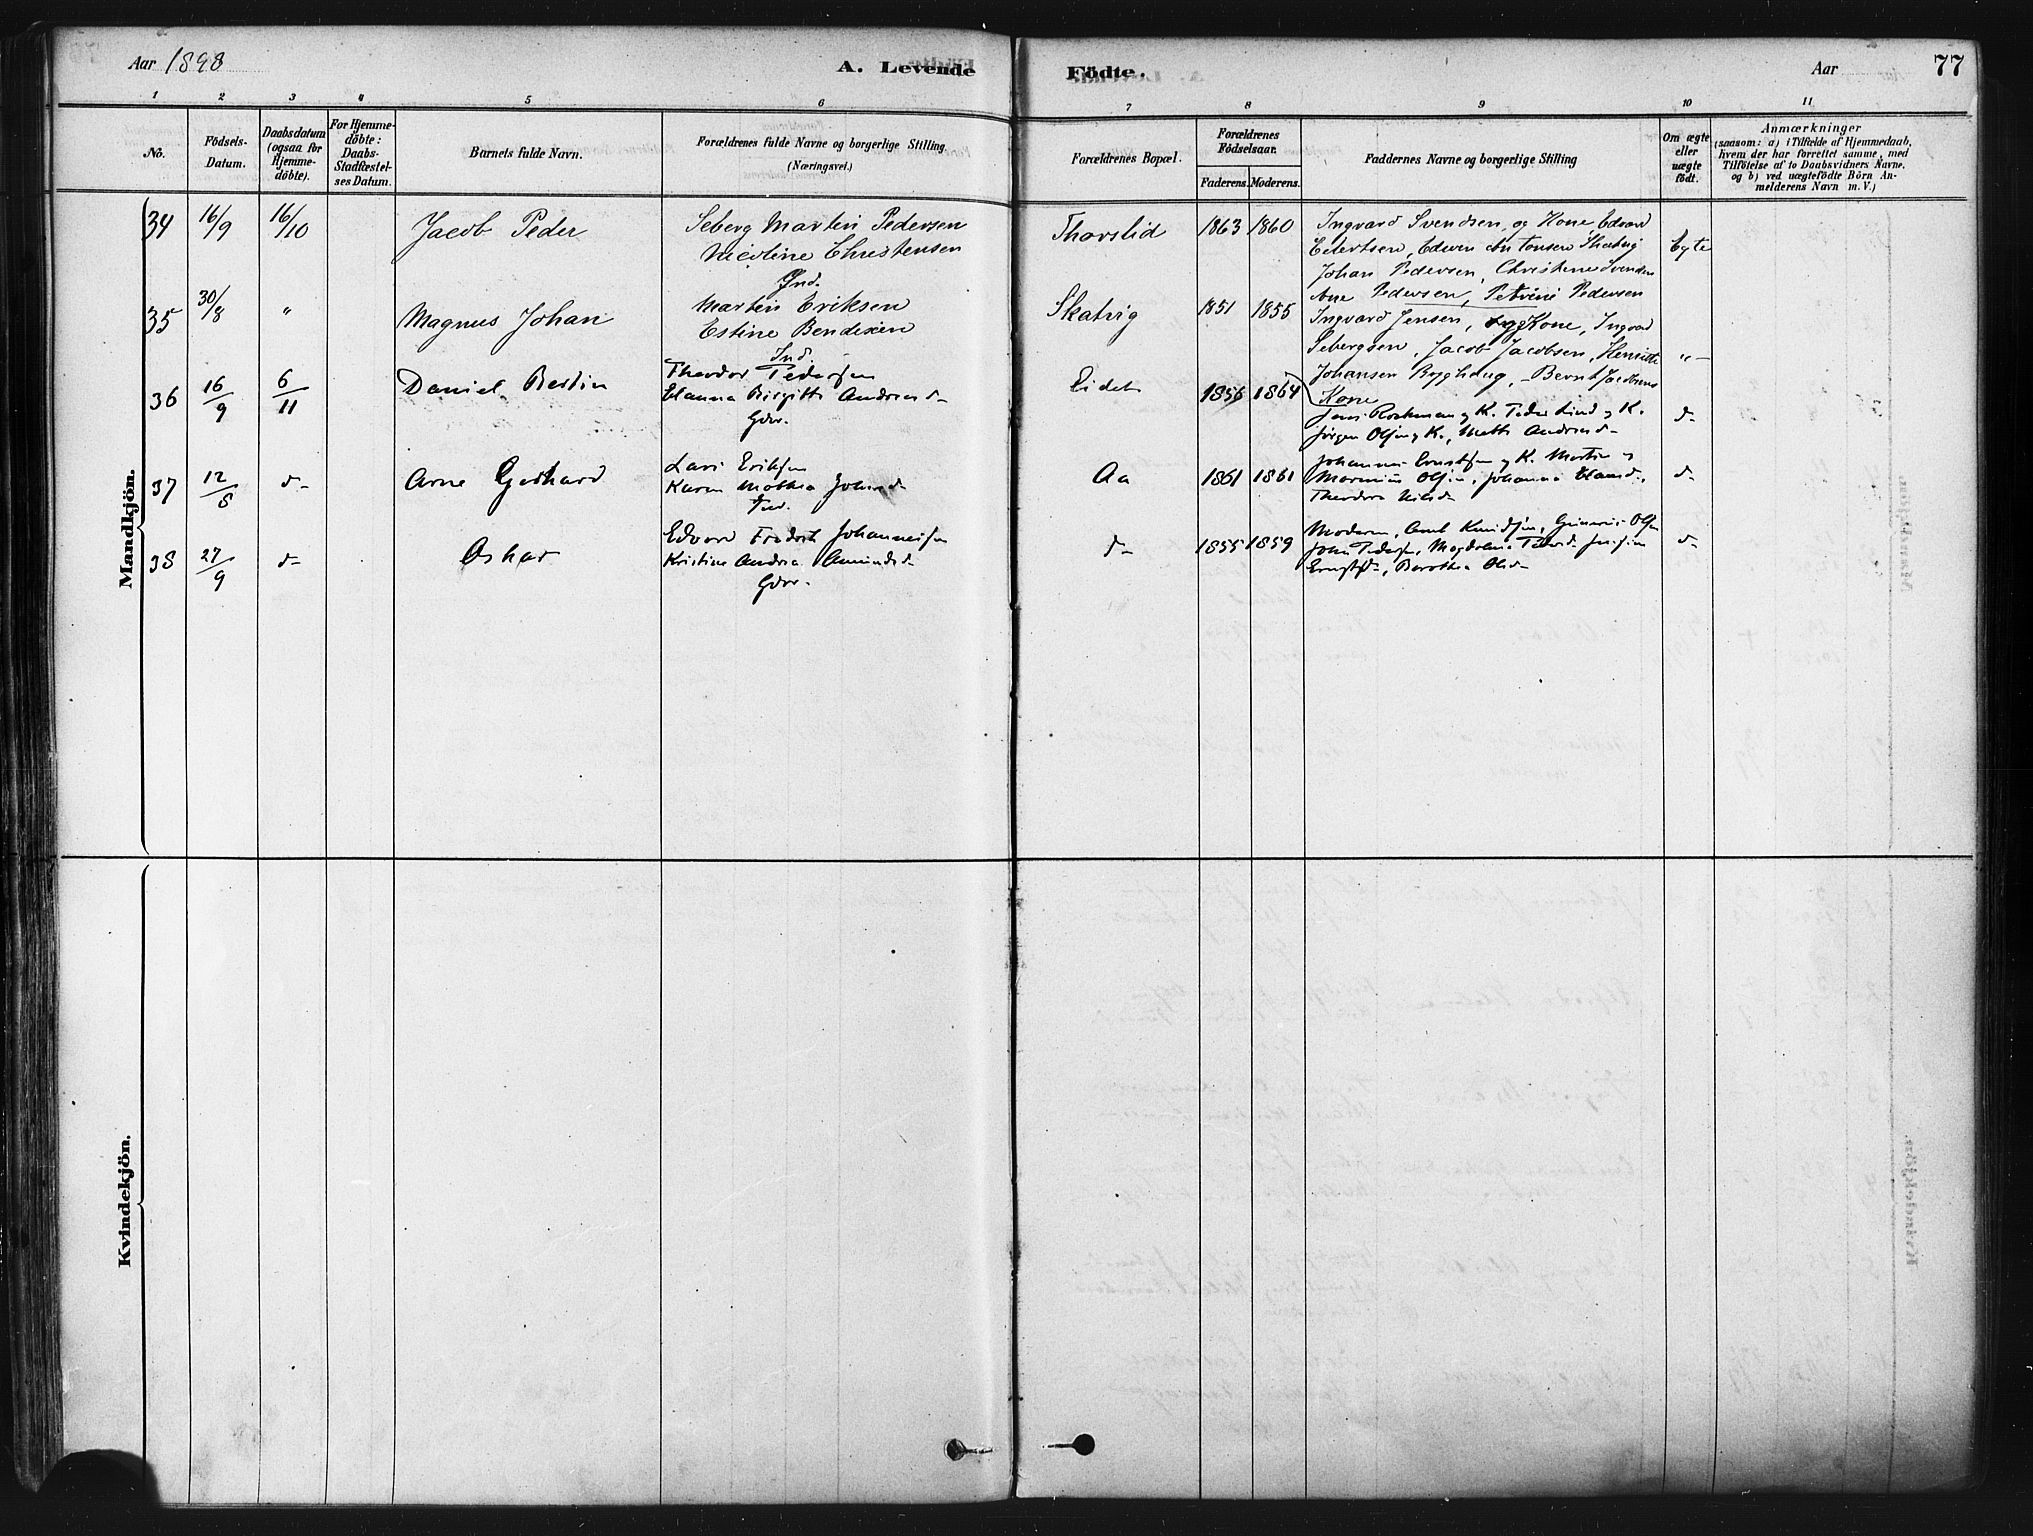 Aar 1898
A. Levende
Födte.
Aar
77
1 2 3 4 5 6 7 8 9 10 11
No.
Födsels-
Datum.
Daabsdatum
(ogsaa for
Hjemme-
døbte).
For Hjemme-
døbte:
Daabs-
Stadfæstel-
ses Datum.
Barnets fulde Navn.
Forældrenes fulde Navne og borgerlige Stilling
(Næringsvei.)
Forældrenes Bopæl.
Forældrenes
Födselsaar.
Faderens. Moderens.
Faddernes Navne og borgerlige Stilling
Om ægte
eller
uægte
födt.
Anmærkninger
(saasom: a) i Tilfælde af Hjemmedaab,
hvem der har forrettet samme, med
Tilføielse af to Daabsvidners Navne.
og b) ved uægtefødte Börn An-
melderens Navn m. V.)
Mandkjön.
34 16/9 16/10 Jacob Peder
Seberg Martin Pedersen
Nicoline Christensen
Ind.
Thorslid 1863 1860
Ingvard Svendsen, og Kone, Edvard
Eilertsen, Edwin Antonsen Skatvig
Johan Pedersen, Christine Svendsen
Ane Pedersen, Petrine Pedersen
Egte
35 30/8 " Magnus Johan
Martin Eriksen
Estine Bendixen
Ind.
Skatvig 1851 1855
Ingvard Jensen, og Kone, Ingvad
Sebergsen, Jacob Jacobsen, Henritte
Johansen Byghaug, Bernt Jacobsens
Kone
"-
36 16/9 6/11 Daniel Bertin
Theodor Pedersen
Hanna Birgitte Andreasd-
Gdbr.
Eidet 1856 1864
Jens Rockman og K. Peder Lind og K.
Jørgen Olsen og K., Mette Andreasd-
d-
37 12/8 d- Arne Gerhard
Lars Eriksen
Karen Mathea Johansd-
Ind.
Aa 1861 1861
Johannes Ernstsen og K. Martin og
Marinius Olsen, Johanna Hansd-,
Theodora Nilsd-
d-
38 27/9 d- Oskar
Edvard Fredrik Johannessen
Kristine Andrea Amundsd-
Gdbr.
d- 1855 1859
Moderen, Amt Knudsen, Gunerius Olsen
John Pedersen, Magdalena Pedersd-
Ernstsd-, Dorothea Olsd-
d-
Kvindekjön.